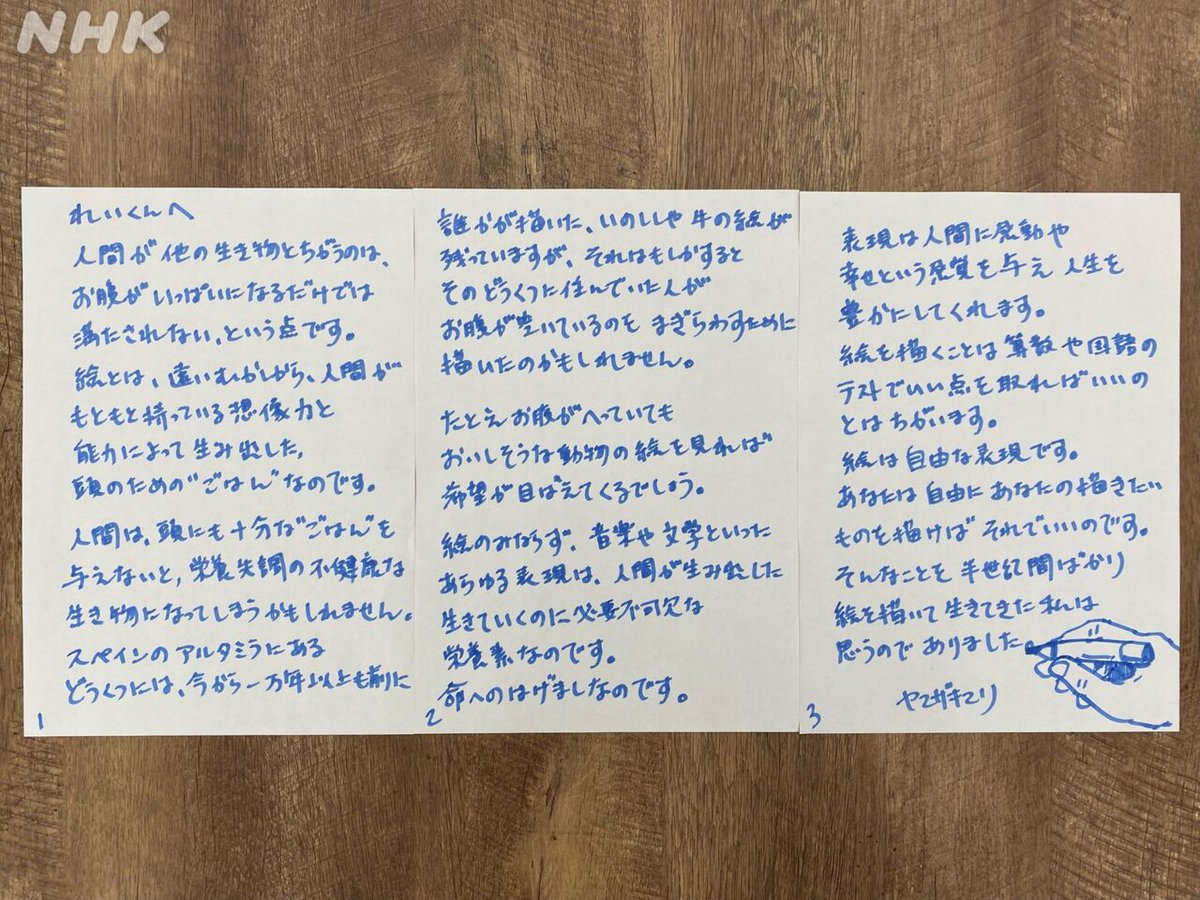 NHK
れいくんへ
人間が他の生き物とちがうのは、
お腹がいっぱいになるだけでは
満たされない、という点です。
絵とは、遠いむかしから、人間が
もともと持っている想像力と
能力によって生み出した、
頭のための"ごはん"なのです。
人間は、頭にも十分な"ごはん"を
与えないと、栄養失調の不健康な
生き物になってしまうかもしれません。
スペインのアルタミラにある
どうくつには、今から一万年以上も前に
1
誰かが描いた、いのししや牛の絵が
残っていますが、それはもしかすると
そのどうくつに住んでいた人が
お腹が空いているのをまぎらわすために
描いたのかもしれません。
たとえお腹がへっていても
おいしそうな動物の絵を見れば
希望が目ばえてくるでしょう。
絵のみならず、音楽や文学といった
あらゆる表現は、人間が生み出した
生きていくのに必要不可欠な
栄養素なのです。
命へのはげましなのです。
2
表現は人間に感動や
幸せという感覚を与え人生を
豊かにしてくれます。
絵を描くことは算数や国語の
テストでいい点を取ればいいの
とはちがいます。
絵は自由な表現です。
あなたは自由にあなたの描きたい
ものを描けばそれでいいのです。
そんなことを半世紀間ばかり
絵を描いて生きてきた私は
思うのでありました
ヤマザキマリ
3